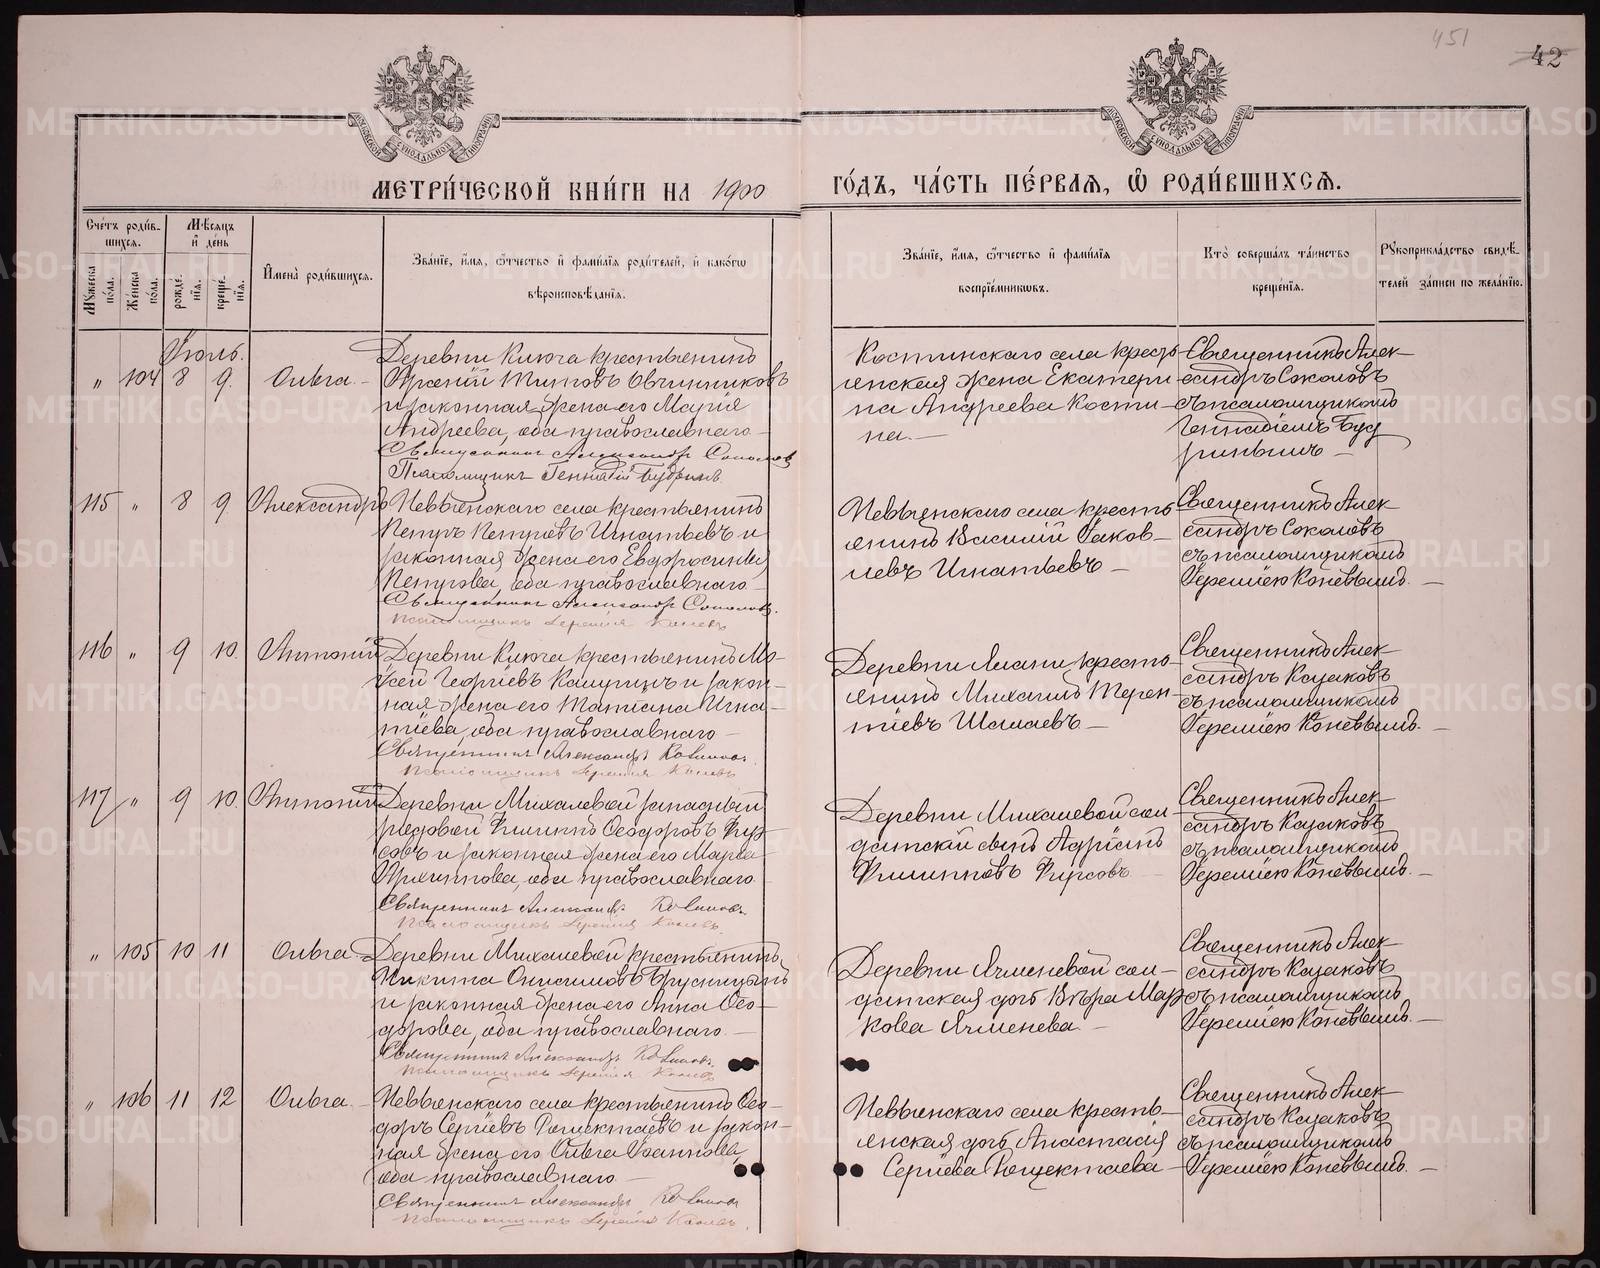 451
42
МЕТРИ́ЧЕСКОЙ КНИ́ГИ НА 1900
ГО́ДЪ, ЧА́СТЬ ПЕ́РВАЯ, Ѡ РОДИ́ВШИХСЯ.
МОСКОВСКОЙ СѴНОДАЛЬНОЙ ТИПОГРАФІИ
МОСКОВСКОЙ СѴНОДАЛЬНОЙ ТИПОГРАФІИ
Счетъ роди́вшихся.
Мꙋжеска пола.
Же́нска пола.
Мѣсяцъ и де́нь
рожде́нїя.
креще́нїя.
Имена̀ роди́вшихся.
Зва́нїе, и́мя, ѻ҆́тчество и҆ фами́лїя роди́телей, и҆ како́гѡ
вѣроисповѣ́данїя.
Зва́нїе, и́мя, ѻ҆́тчество и҆ фами́лїя
воспрїе́мникѡвъ.
Кто̀ соверша́лъ та́инство
креще́нїя.
Рꙋкоприкла́дство свидѣ́-
телей за́писи по жела́нїю.
Іюль.
" 104 8 9. Ольга.
Деревни Ключа крестьянинъ
Арсеній Титовъ Овчинниковъ
и законная жена его Марія
Андреева, оба православнаго
Священникъ Александръ Соколовъ
Псаломщикъ Геннадій Будринъ
Костинскаго села кресть-
янская жена Екатери-
на Андреева Кости-
на.
Священникъ Алек-
сандръ Соколовъ
съ псаломщикомъ
Геннадіемъ Буд
ринымъ
115 " 8 9 Александръ
Невьянскаго села крестьянинъ
Петръ Петровъ Игнатьевъ и
законная жена его Евфросинія
Петрова, оба православнаго
Священникъ Александръ Соколовъ.
Псаломщикъ Іеремія Коневъ
Невьянскаго села кресть-
янинъ Василій Іаков-
левъ Игнатьевъ
Священникъ Алек-
сандръ Соколовъ
съ псаломщикомъ
Іереміею Коневымъ.
116 " 9 10. Антоній
Деревни Ключа крестьянинъ Мо-
исей Георгіевъ Калугинъ и закон-
ная жена его Татіана Игна-
тіева, оба православнаго
Священникъ Александръ Казаковъ.
Псаломщикъ Іеремія Коневъ
Деревни Ялани кресть-
янинъ Михаилъ Терен-
тіевъ Шалаевъ
Священникъ Алек-
сандръ Казаковъ
съ псаломщикомъ
Іереміею Коневымъ.
117 " 9 10. Антоній
Деревни Михалевой запасный
рядовой Филиппъ Ѳеодоровъ Фир-
совъ и законная жена его Марѳа
Архиппова, оба православнаго
Священникъ Александръ Казаковъ.
Псаломщикъ Іеремія Коневъ.
Деревни Михалевой сол-
датскій сынъ Адріанъ
Филипповъ Фирсовъ
Священникъ Алек-
сандръ Казаковъ
съ псаломщикомъ
Іереміею Коневымъ.
" 105 10 11 Ольга
Деревни Михалевой крестьянинъ
Никита Онисимовъ Брусницынъ
и законная жена его Анна Ѳео-
дорова, оба православнаго.
Священникъ Александръ Казаковъ.
Псаломщикъ Іеремія Коневъ
Деревни Ячменевой сол-
датская дочь Вѣра Мар-
кова Ячменева
Священникъ Алек-
сандръ Казаковъ
съ псаломщикомъ
Іереміею Коневымъ.
" 106 11 12 Ольга.
Невьянскаго села крестьянинъ Ѳео-
доръ Сергіевъ и закон-
ная жена его Ольга Іоаннова,
оба православнаго
Священникъ Александръ Казаковъ
Псаломщикъ Іеремія Коневъ.
Невьянскаго села кресть-
янская дочь Анастасія
Сергіева
Священникъ Алек-
сандръ Казаковъ
съ псаломщикомъ
Іереміею Коневымъ.
METRIKI.GASO-URAL.RU